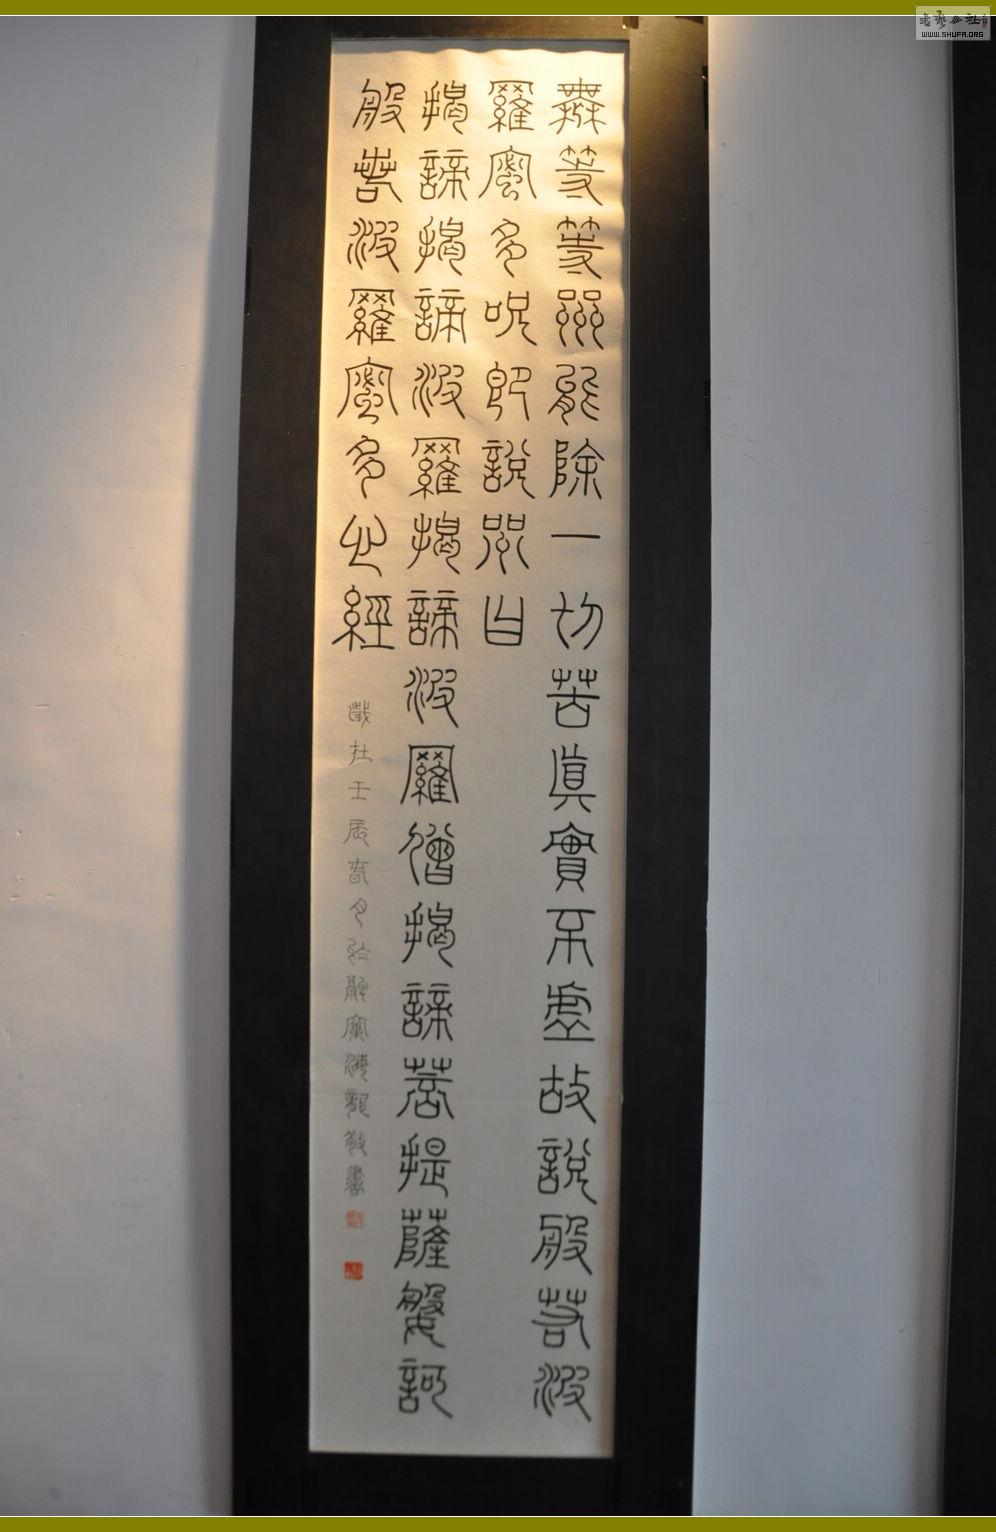 無等等咒能除一切苦真實不虛故說般若波
羅蜜多呪即說咒曰
揭諦揭諦波羅揭諦波羅僧揭諦菩提薩婆訶
般若波羅蜜多心經
歲在壬辰春月於
敬書
WWW.SHUFA.ORG